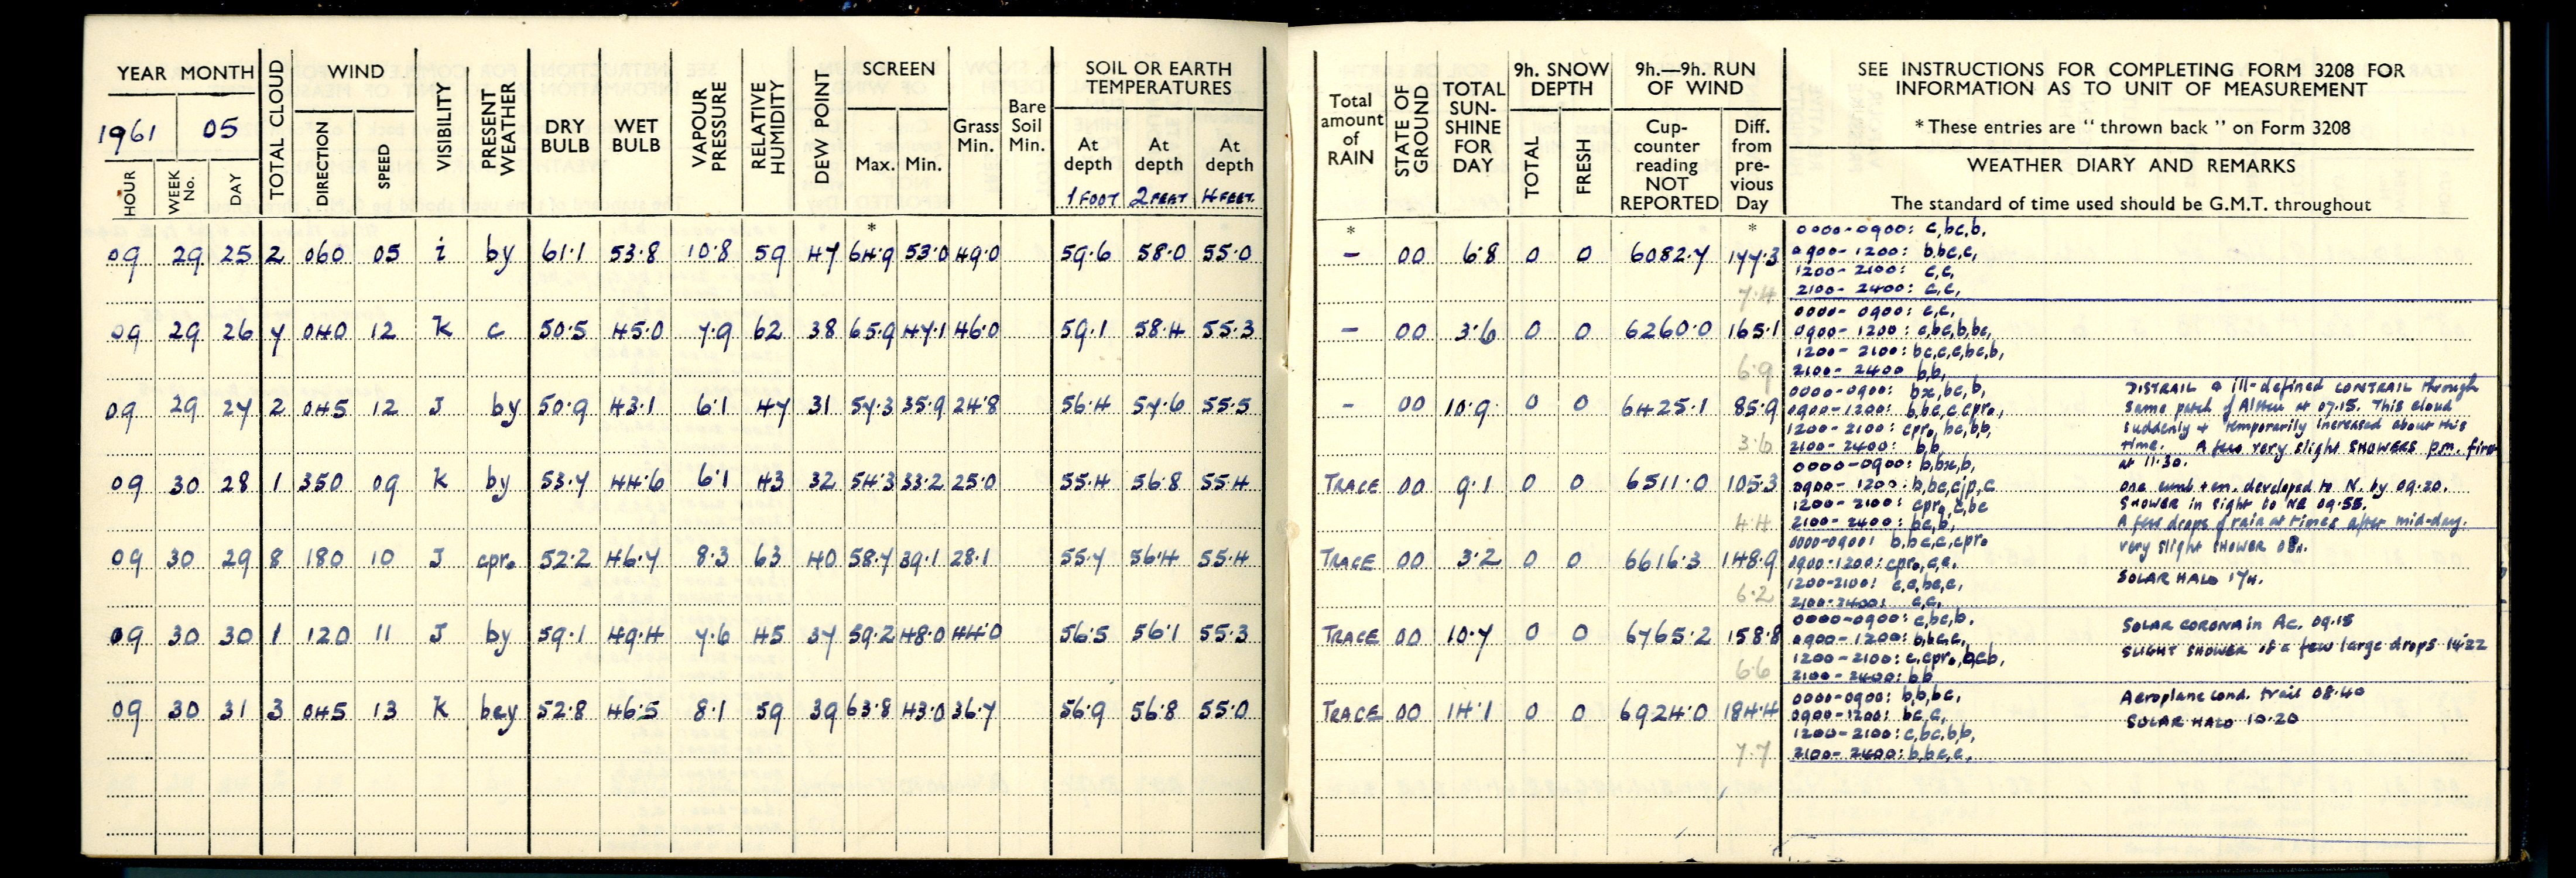 YEAR MONTH
1961 05
HOUR
WEEK No.
DAY
TOTAL CLOUD
WIND
DIRECTION
SPEED
VISIBILITY
PRESENT WEATHER
DRY BULB
WET BULB
VAPOUR PRESSURE
RELATIVE HUMIDITY
DEW POINT
SCREEN
Max. Min.
Grass Min.
Bare Soil Min.
SOIL OR EARTH
TEMPERATURES
At depth 1 FOOT
At depth 2 FEET
At depth 4 FEET
Total amount of RAIN
STATE OF GROUND
TOTAL SUN-SHINE FOR DAY
9h. SNOW DEPTH
TOTAL
FRESH
9h.—9h. RUN OF WIND
Cup-counter reading NOT REPORTED
Diff. from pre-vious Day
SEE INSTRUCTIONS FOR COMPLETING FORM 3208 FOR
INFORMATION AS TO UNIT OF MEASUREMENT
* These entries are "thrown back" on Form 3208
WEATHER DIARY AND REMARKS
The standard of time used should be G.M.T. throughout
* * *
09 29 25 2 060 05 i by 61·1 53·8 10·8 59 47 64·9 53·0 49·0 59·6 58·0 55·0 – 00 6·8 0 0 6082·7 177·3
7·4
0000-0900: c,bc,b,
0900-1200: b,bc,c,
1200-2100: c,c,
2100-2400: c,c,
09 29 26 7 040 12 K c 50·5 45·0 7·9 62 38 65·9 47·1 46·0 59·1 58·4 55·3 – 00 3·6 0 0 6260·0 165·1
6·9
0000-0900: c,c,
0900-1200: c,bc,b,bc,
1200-2100: bc,c,c,bc,b,
2100-2400 b,b,
09 29 27 2 045 12 J by 50·9 43·1 6·1 47 31 57·3 35·9 24·8 56·4 57·6 55·5 – 00 10·9 0 0 6425·1 85·9
3·6
0000-0900: bx,bc,b,
0900-1200: b,bc,c,cpro,
1200-2100: cpro, bc,b,b,
2100-2400: b,b,
DISTRAIL & ill-defined CONTRAIL through
same patch of Altcu at 07.15. This cloud
suddenly + temporarily increased about this
time. A few very slight SHOWERS p.m. first
at 11·30.
09 30 28 1 350 09 K by 53·7 44·6 6·1 43 32 54·3 33·2 25·0 55·4 56·8 55·4 TRACE 00 9·1 0 0 6511·0 105·3
4·4
0000-0900: b,bx,b,
0900-1200: b,bc,cjp,c
1200-2100: cpro,c,bc
2100-2400: bc,b,
One cumb + en. developed to N. by 09·20.
SHOWER in sight to NE 09·55.
A few drops of rain at times after mid-day.
09 30 29 8 180 10 J cpro 52·2 46·7 8·3 63 40 58·7 39·1 28·1 55·7 56·4 55·4 TRACE 00 3·2 0 0 6616·3 148·9
6·2
0000-0900: b,bc,c,cpro
0900-1200: cpro,c,c,
1200-2100: c,c,bc,c,
2100-2400: c,c,
very slight SHOWER 08h.
SOLAR HALO 17H.
09 30 30 1 120 11 J by 59·1 49·4 7·6 45 37 59·2 48·0 44·0 56·5 56·1 55·3 TRACE 00 10·7 0 0 6765·2 158·8
6·6
0000-0900: c,bc,b,
0900-1200: b,bc,c,
1200-2100: c,cpro,bcb,
2100-2400: bb
SOLAR CORONA in Ac. 09.15
SLIGHT SHOWER of a few large drops 14·22
09 30 31 3 045 13 K bcy 52·8 46·5 8·1 59 39 63·8 43·0 36·7 56·9 56·8 55·0 TRACE 00 14·1 0 0 6924·0 184·4
7·7
0000-0900: b,b,bc,
0900-1200: bc,c,
1200-2100: c,bc,b,b,
2100-2400: b,bc,c,
Aeroplane cond. trail 08·40
SOLAR HALO 10·20